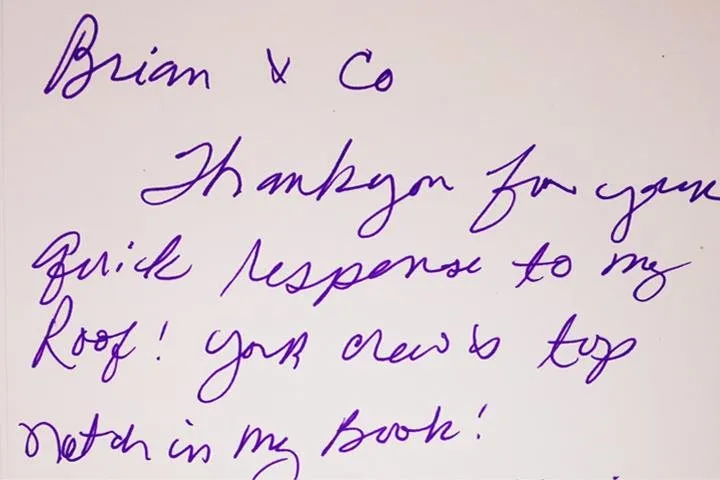 Brian & Co
Thankyou for your
quick response to my
Roof! Your crew is top
notch in my Book!